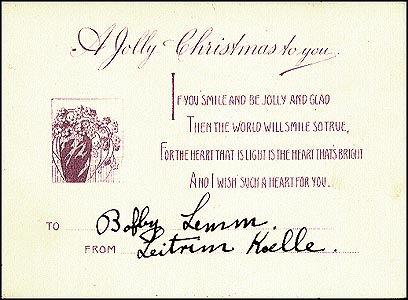 A Jolly Christmas to you.
IF YOU SMILE AND BE JOLLY AND GLAD
THEN THE WORLD WILL SMILE SO TRUE,
FOR THE HEART THAT IS LIGHT IS THE HEART THATS BRIGHT
AND I WISH SUCH A HEART FOR YOU.
TO Bobby Lemm.
FROM Leitrim Koelle.